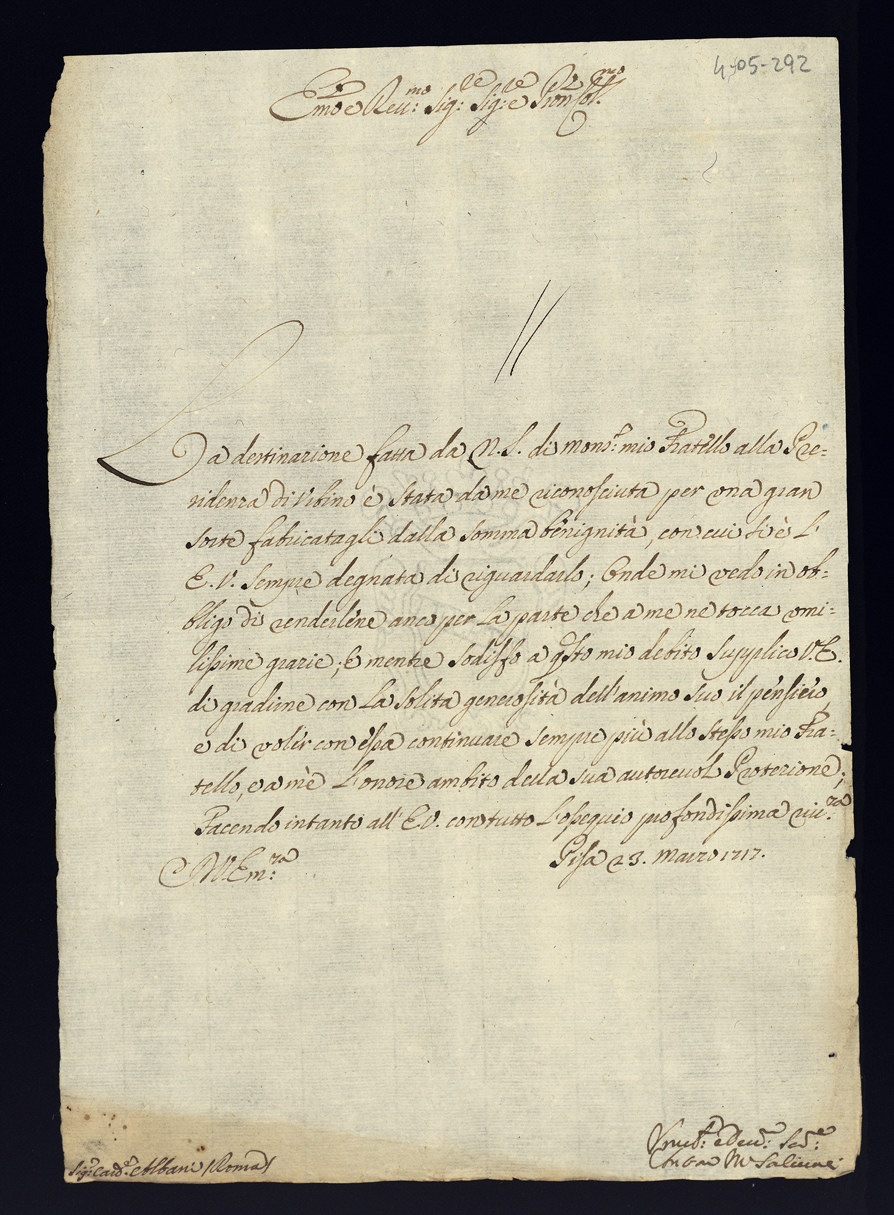 4-05-292
Em.o e Reu:mo Sig:re Sig:re Pron Col.mo
La destinazione fatta da N. S. di Mons:r mio Fratello alla Pre=
sidenza di Vrbino è stata da me riconosciuta per una gran
sorte fabricatagli dalla somma benignità, con cui si è l'
E. V. sempre degnata di riguardarlo; Onde mi vedo in ob=
bligo di renderlene anco per la parte che a me ne tocca umi=
lissime grazie; E mentre sodisfo a q.sto mio debito supplico V. E.
di gradirne con la solita generosità dell'animo suo il pensiero,
e di voler con essa continuare sempre più allo stesso mio Fra=
tello, e a mè l'onore ambito della sua autorevol Protezione;
Facendo intanto all'E. V. con tutto l'ossequio profondissima riu:za
Di V. Em:za
Pisa 23. Marzo 1717.
Sig:r Card:e Albani (Roma)
e Deu: Ser:e